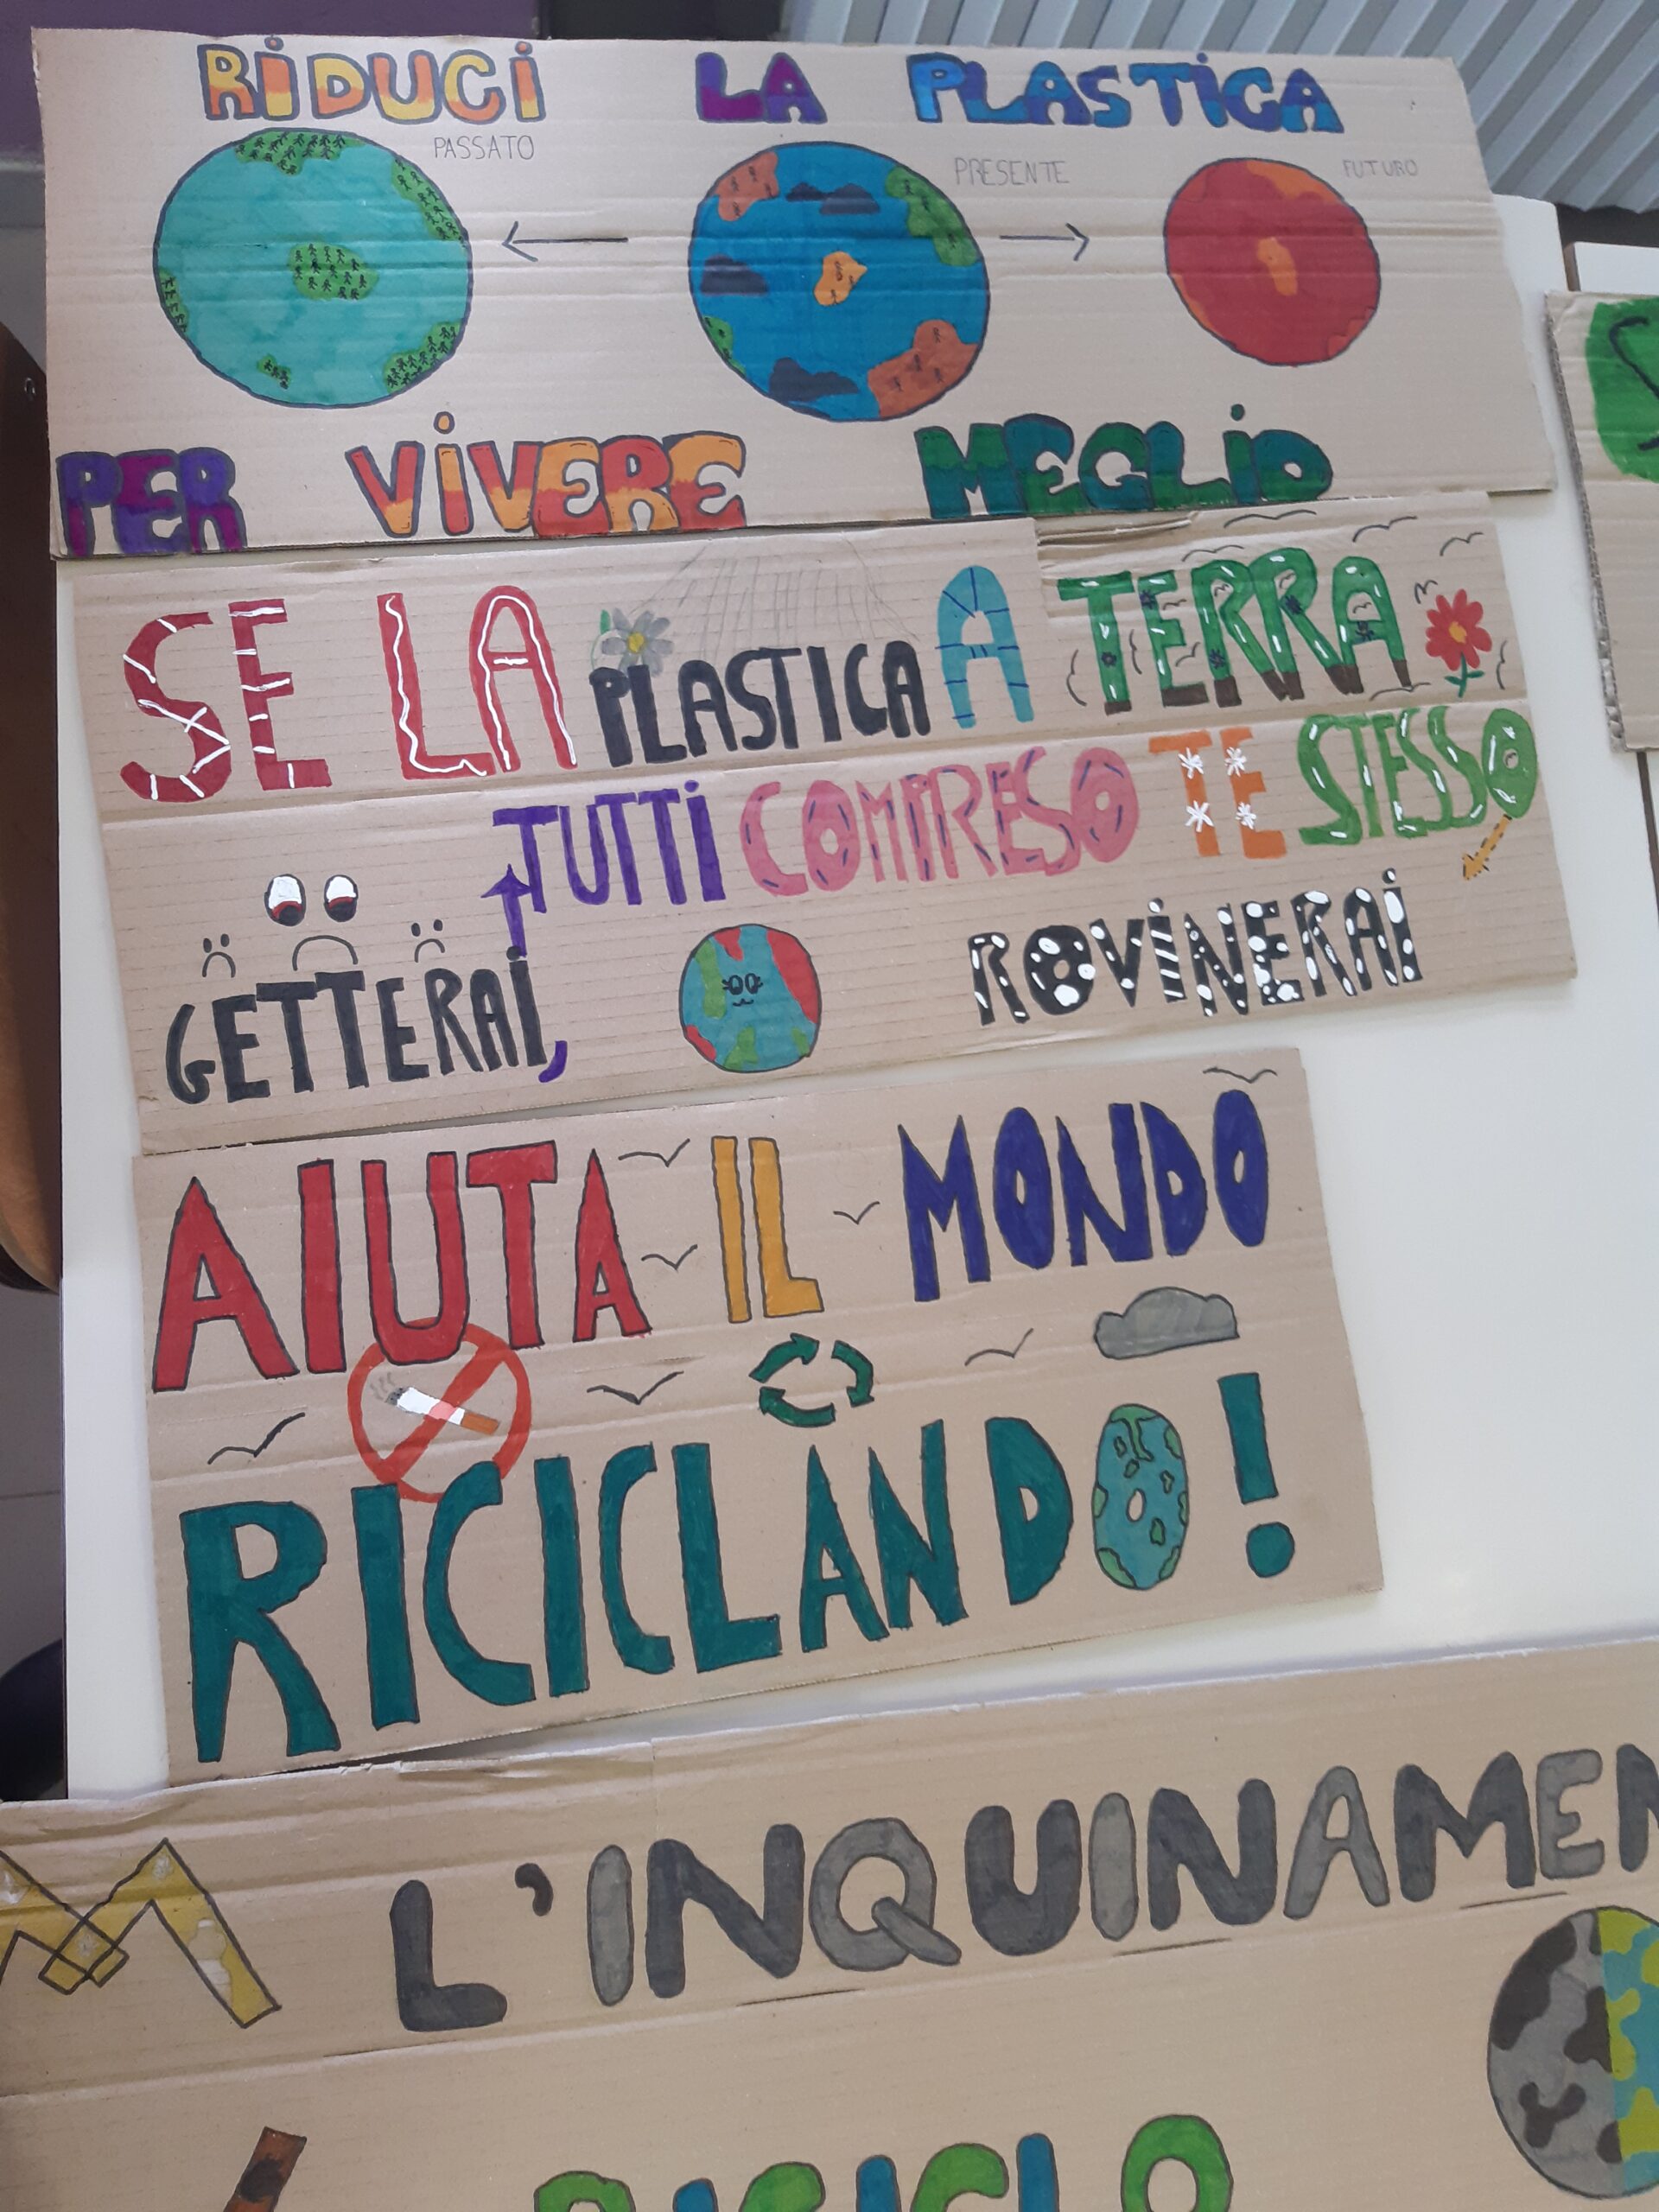 RIDUCI LA PLASTICA
PASSATO
PRESENTE
FUTURO
PER VIVERE MEGLIO
SE LA PLASTICA A TERRA
GETTERAI,
TUTTI COMPRESO TE STESSO
ROVINERAI
AIUTA IL MONDO
RICICLANDO!
M L'INQUINAMEN
RICICLO